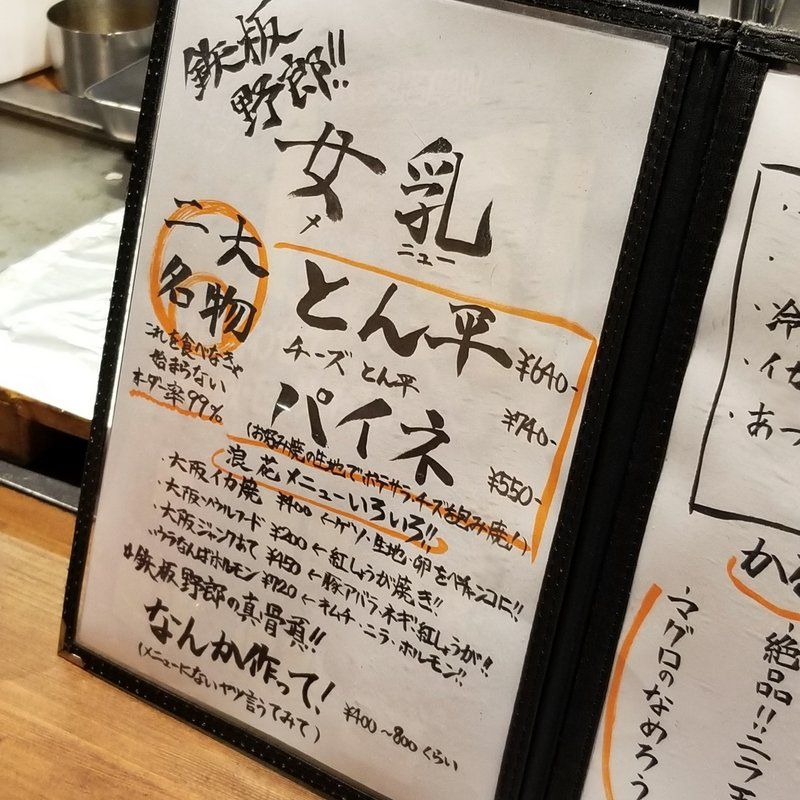 鉄板
野郎!!
女 乳
メ ニュー
二大
名物
これを食べなきゃ
始まらない
オーダー率99%
とん平 ¥640-
チーズ とん平 ¥740-
パイネ ¥550-
(お好み焼の生地でポテサラ、チーズを包み焼!)
浪花メニューいろいろ!!
・大阪イカ焼 ¥400 ←ゲソ・生地・卵をペチャンコに!!
・大阪ソウルフード ¥200 ←紅しょうが焼き!!
・大阪ジャンクあて ¥450 ←豚アバラ・ネギ・紅しょうが!!
・ウラなんばホルモン ¥720 ←キムチ・ニラ・ホルモン!!
#鉄板野郎の真骨頂!!
なんか作って! ¥400~800くらい
(メニューにないヤツ言うてみて)
・冷
・イカ
・あつ
か
・マグロのなめろう
・絶品!!ニラ玉